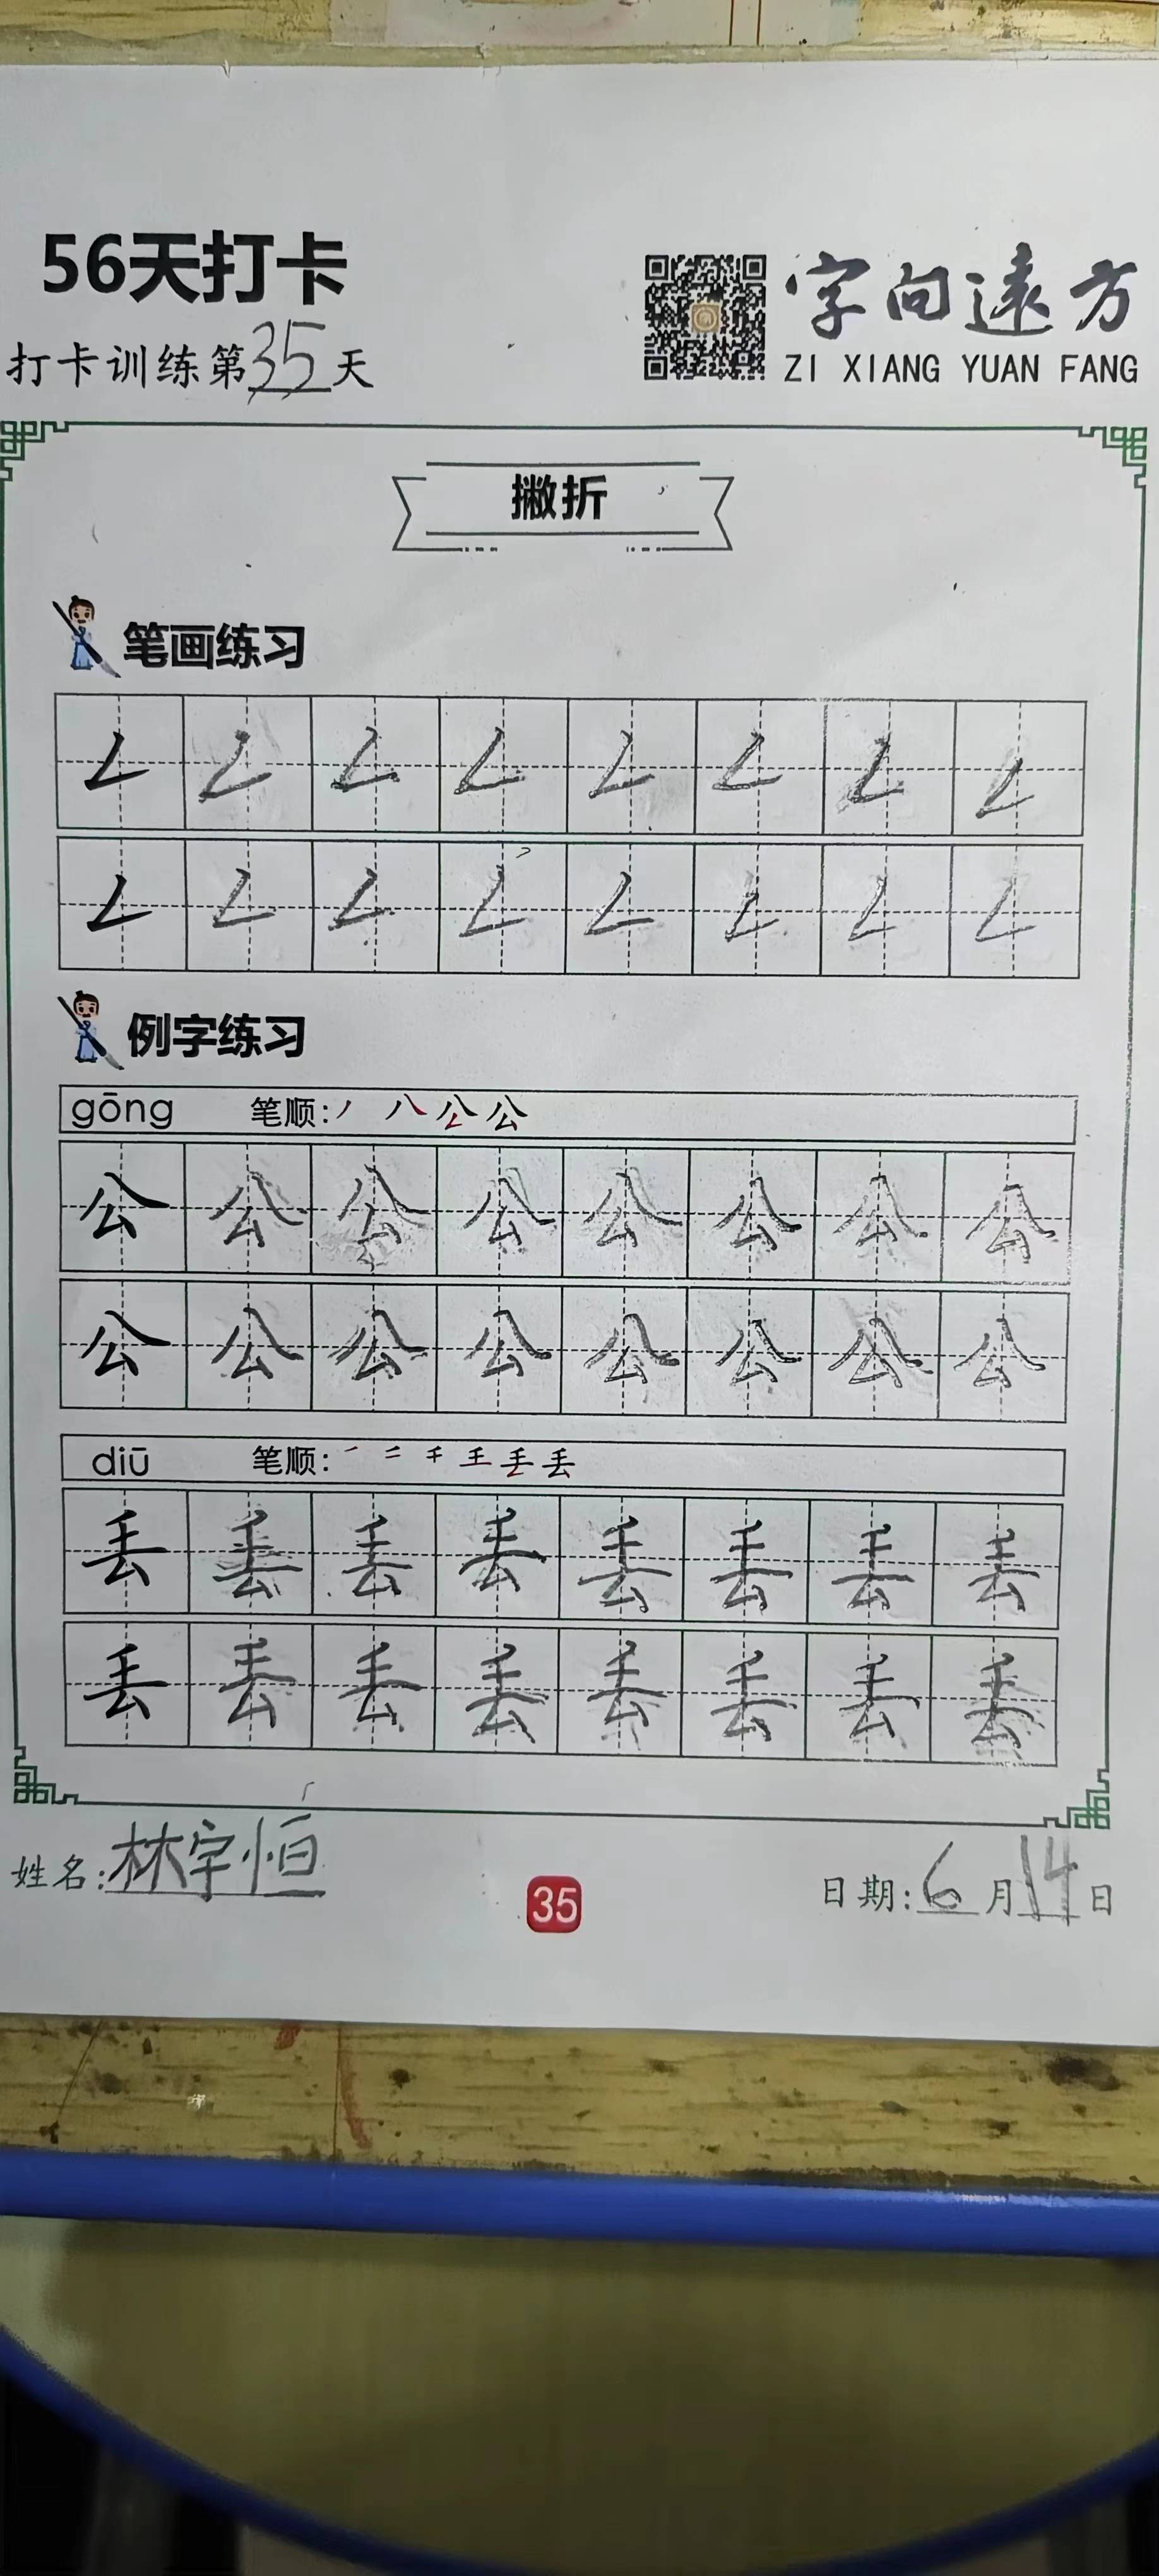 56天打卡
打卡训练第35天
字向遠方
ZI XIANG YUAN FANG
撇折
笔画练习
例字练习
gōng 笔顺: 丿 八 公 公
公 公 公 公 公 公 公 公
公 公 公 公 公 公 公 公
diū 笔顺: 一 二 千 王 丢 丢
丢 丢 丢 丢 丢 丢 丢 丢
丢 丢 丢 丢 丢 丢 丢 丢
姓名:林宇恒
35
日期:6月14日